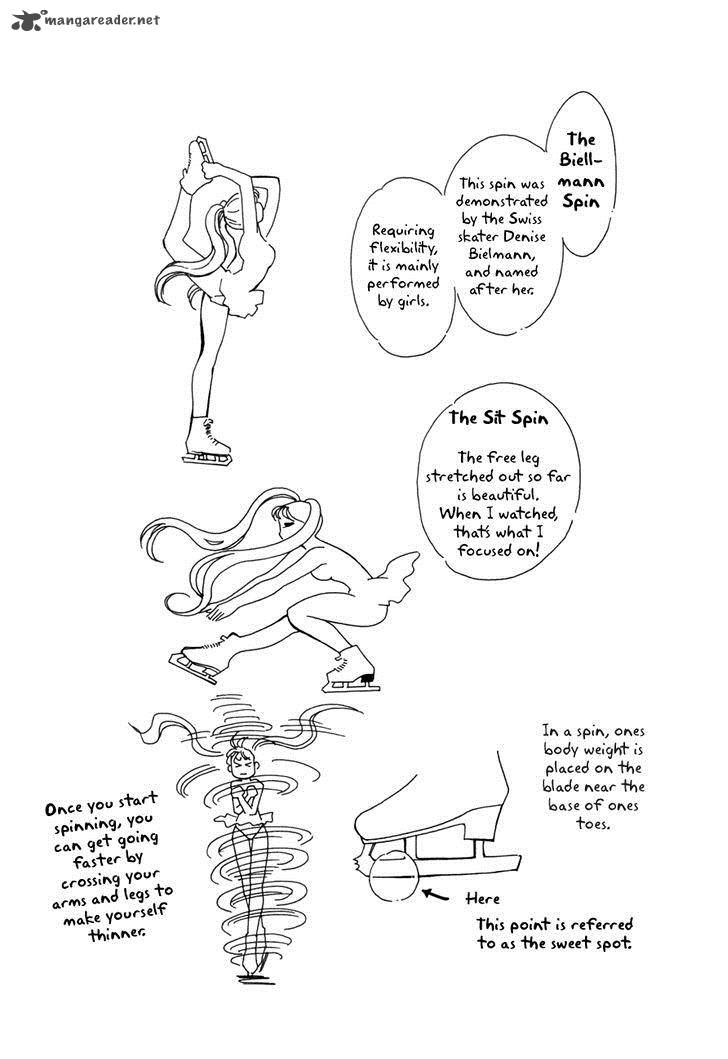 mangareader.net
The
Biell-
mann
Spin
This spin was
demonstrated
by the Swiss
skater Denise
Bielmann,
and named
after her.
Requiring
flexibility,
it is mainly
performed
by girls.
The Sit Spin
The free leg
stretched out so far
is beautiful.
When I watched,
that's what I
focused on!
In a spin, ones
body weight is
placed on the
blade near the
base of ones
toes.
Once you start
spinning, you
can get going
faster by
crossing your
arms and legs to
make yourself
thinner.
Here
This point is referred
to as the sweet spot.